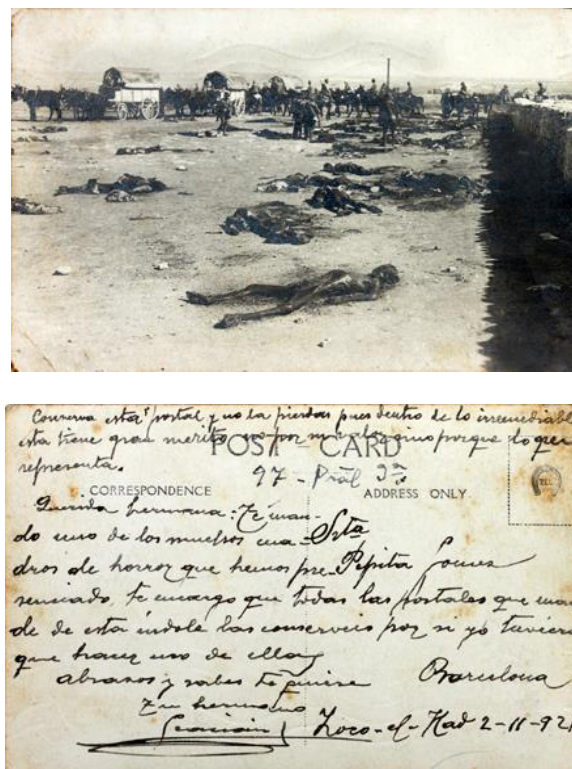 Conserva esta postal y no la pierdas pues dentro de lo irremediable
esta tiene gran merito, no por su valor sino porque lo que
representa.
POST CARD
97 - Pral 3ª
CORRESPONDENCE
ADDRESS ONLY
Querida hermana: Te man-
do uno de los muchos cua-
dros de horror que hemos pre-
senciado, te encargo que todas las postales que man
de de esta indole las conserveis por si yo tuviera
que hacer uso de ellas
abrazos y sabes te quiere
Tu hermano
Srta
Pepita Gomez
Barcelona
Zoco-el-Had 2-11-921